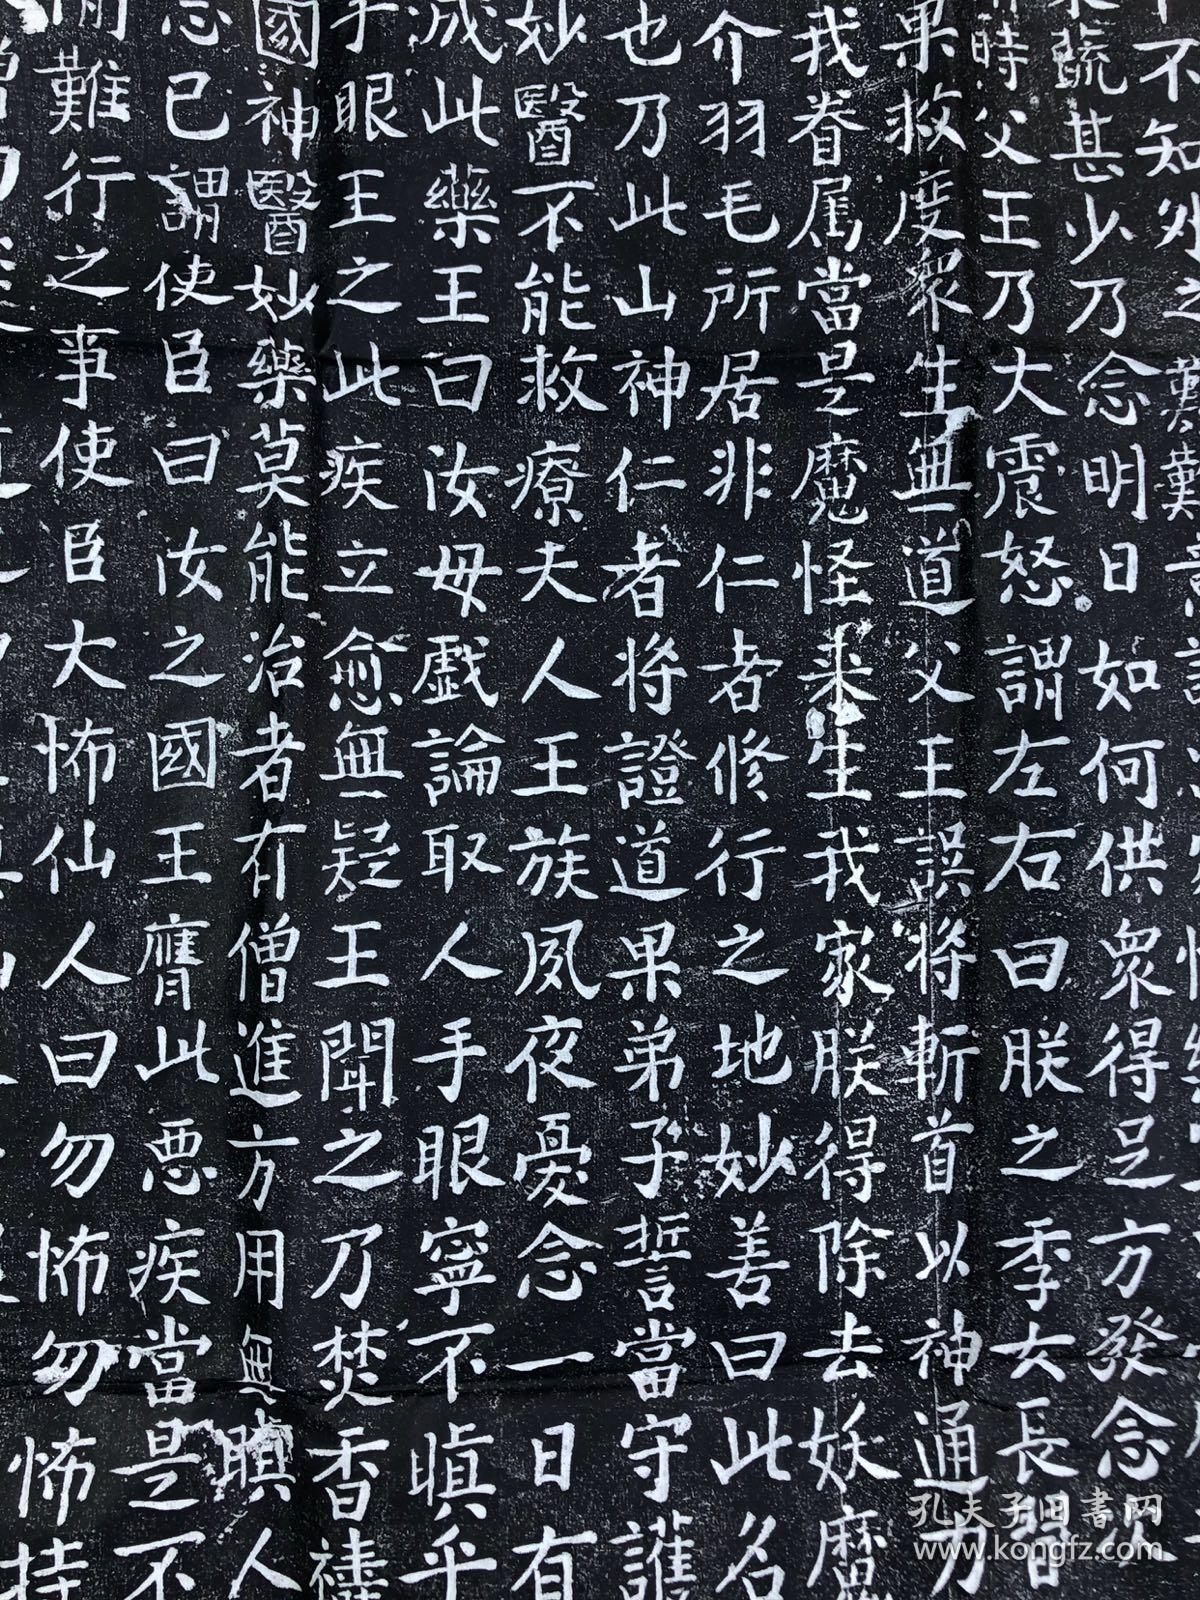 不知外之難難
蔬甚少乃念明日如何供衆得足方發念次
時父王乃大震怒謂左右曰朕之季女長習
果救度衆生無道父王誤將斬首以神通力
我眷属當是魔怪来生我家朕得除去妖魔
介羽毛所居非仁者修行之地妙善曰此名
也乃此山神仁者將證道果弟子誓當守護
妙醫不能救療夫人王族夙夜憂念一日有
成此藥王曰汝毋戲論取人手眼寧不瞋乎
手眼王之此疾立愈無疑王聞之乃焚香禱
國神醫妙藥莫能治者有僧進方用無瞋人
念已謂使臣曰汝之國王膺此悪疾當是不
難行之事使臣大怖仙人曰勿怖勿怖持
孔夫子旧書网
www.kongfz.com